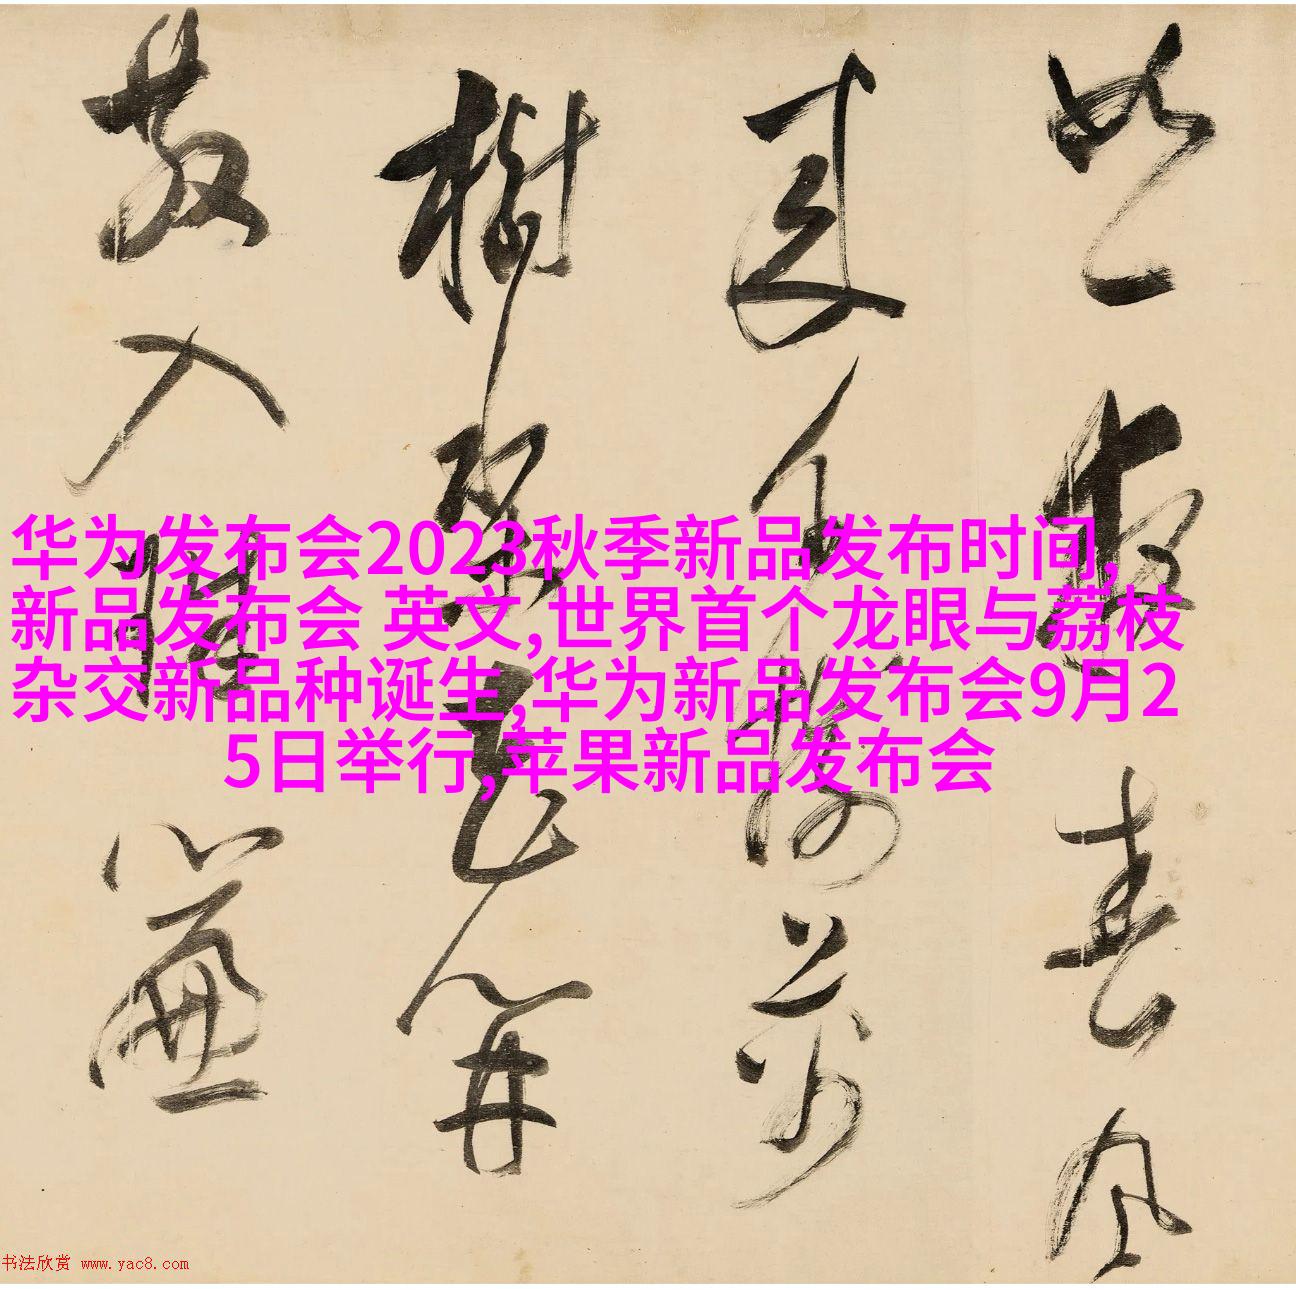 如一夜春風
來千樹萬
樹梨花開
散入珠簾
华为发布会2023秋季新品发布时间,
新品发布会 英文,世界首个龙眼与荔枝
杂交新品种诞生,华为新品发布会9月2
5日举行,苹果新品发布会
书法欣赏 www.yac8.com